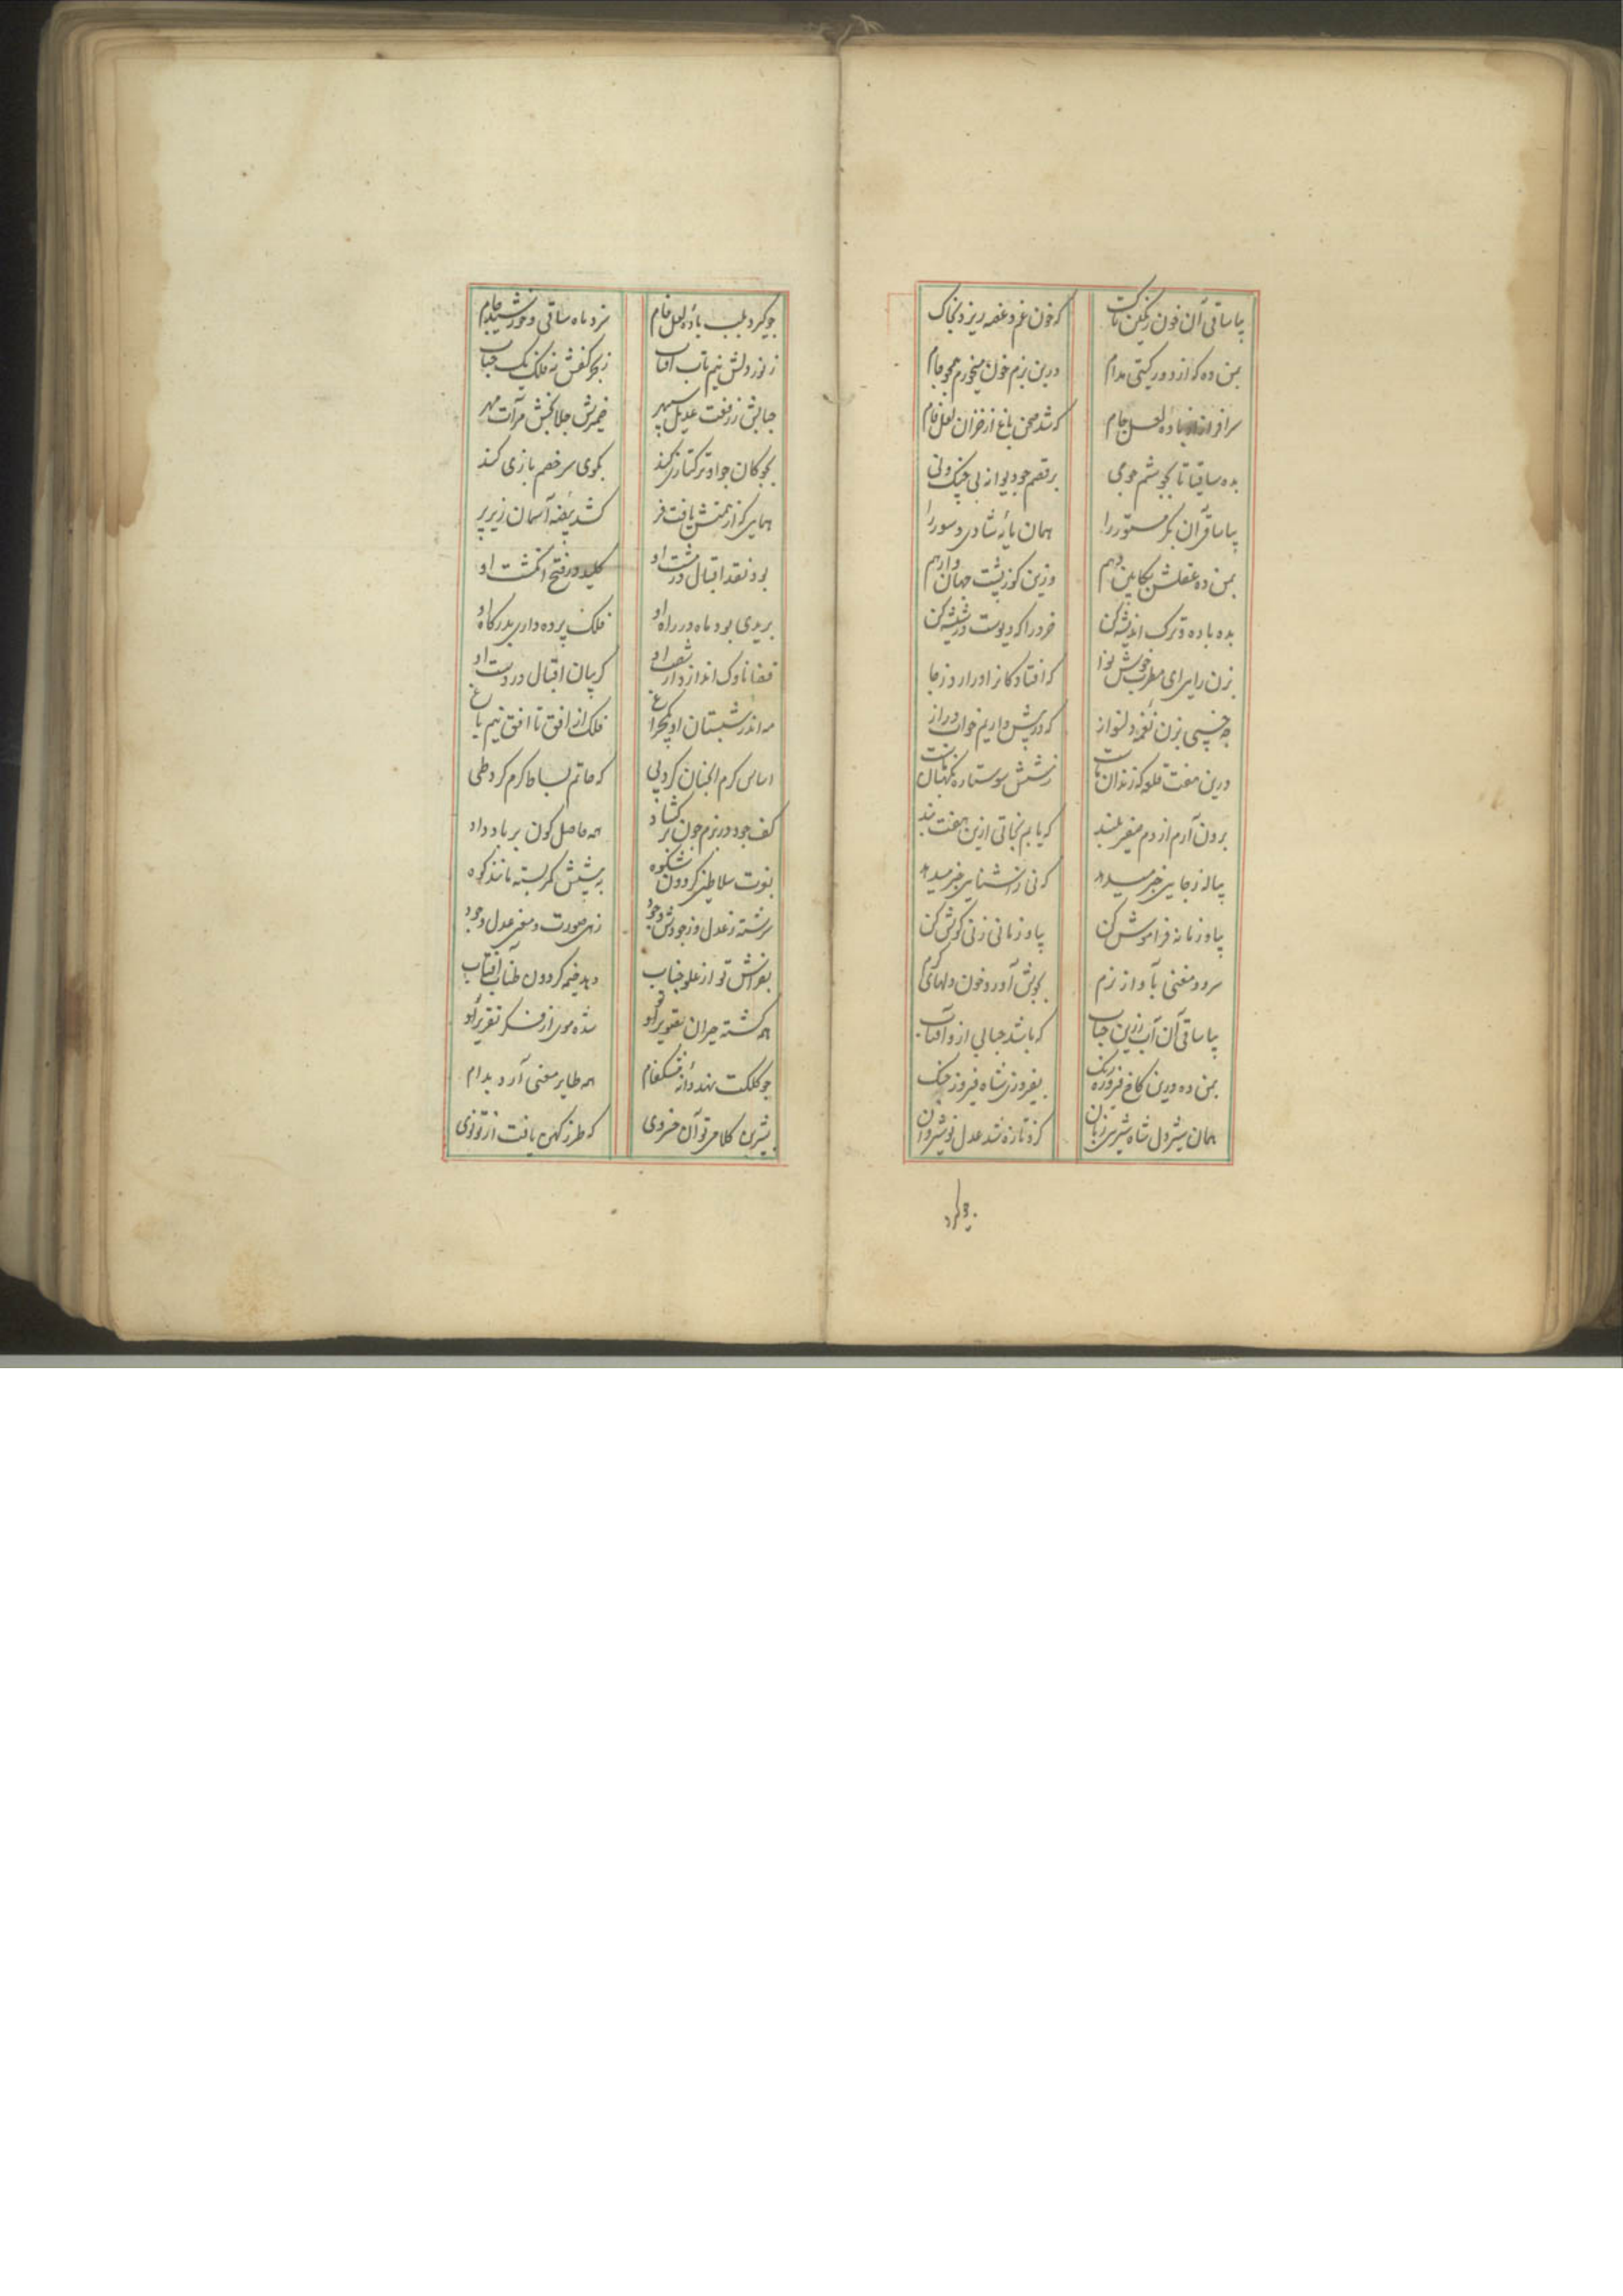 بیا ساقی آن خون رنگین تاک که خون غم و غصه ریزد بخاک
بمن ده که از دور گیتی مدام درین بزم خون میخورم همچو جام
سرافراز باده لعل جام که شد صحن باغ از خزان لعل فام
بده ساقیا تا بجوشم چو می برقصم چو دیوانه بی چنگ و نی
بیا ساقی آن بکر مستور را همان مایه شادی و سور را
بمن ده عقلش بکابین دهم وزین کوژپشت جهان وارهم
بده باده و ترک اندیشه کن خرد را که دیوست در شیشه کن
بزن رایی ای مطرب خوش نوا که افتاد کار او را ز جا
چه خسپی بزن نغمه دلنواز که در پیش داریم خواب دراز
درین هفت قلعه که زندان ماست ز شش سو ستاره نگهبان ماست
برون آرم از دم صفیر بلند که یابم نجاتی ازین هفت بند
پیاله ز جایی خبر میدهد که نی زآشنایی خبر میدهد
بیا و زمانه فراموش کن بیا و زمانی ز نی گوش کن
سرود مغنی بآواز نرم بجوش آورد خون دلهای گرم
بیا ساقی آن آب زرین حباب که باشد حبابی ازو آفتاب
بمن ده درین کاخ فیروزه رنگ بفیروزی شاه فیروز جنگ
همان شیردل شاه شیرین زبان کزو تازه شد عدل نوشیروان
چو گیرد
چو گیرد بلب باده لعل فام سزد ماه ساقی و خورشید جام
ز نور دلش نیم تاب آفتاب ز بحر کفش نه فلک یک حباب
جنابش ز رفعت عدیل سپهر ضمیرش جلابخش مرآت مهر
بچوگان چو او ترکتازی کند بگوی سر خصم بازی کند
همایی که از همتش یافت فر کشد بیضه آسمان زیر پر
بود نقد اقبال در مشت او کلید در فتح انگشت او
بریدی بود ماه در راه او فلک پرده داری بدرگاه او
قضا ناوک انداز در شصت او گریبان اقبال در دست او
مه اندر شبستان او یکچراغ فلک از افق تا افق نیم باغ
اساس کرم آنچنان کرد پی که حاتم بساط کرم کرد طی
کف جود در بزم چون برگشاد همه حاصل کون بر باد داد
بنوبت سلاطین گردون شکوه به پیشش کمر بسته مانند کوه
سرشته ز عدل و ز جودش وجود زهی صورت و معنی عدل و جود
بفراش تو از علو جناب دهد خیمه گردون طناب آفتاب
همه گشته حیران تقریر او شده موی از فکر تقریر او
چو کلکت نهد دانه مشکفام همه طایر معنی آرد بدام
بشیرین کلامی تو آن خسروی که طرز کهن یافت از تو نوی